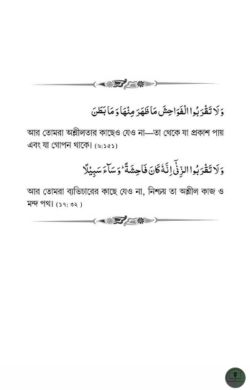 وَلَا تَقْرَبُوا الْفَوَاحِشَ مَا ظَهَرَ مِنْهَا وَمَا بَطَنَ
আর তোমরা অশ্লীলতার কাছেও যেও না—তা থেকে যা প্রকাশ পায়
এবং যা গোপন থাকে। (৬:১৫১)
وَلَا تَقْرَبُوا الزِّنَىٰٓ اِنَّهٗ كَانَ فَاحِشَةً ؕ وَسَآءَ سَبِيْلًا
আর তোমরা ব্যভিচারের কাছে যেও না, নিশ্চয় তা অশ্লীল কাজ ও
মন্দ পথ। (১৭: ৩২ )